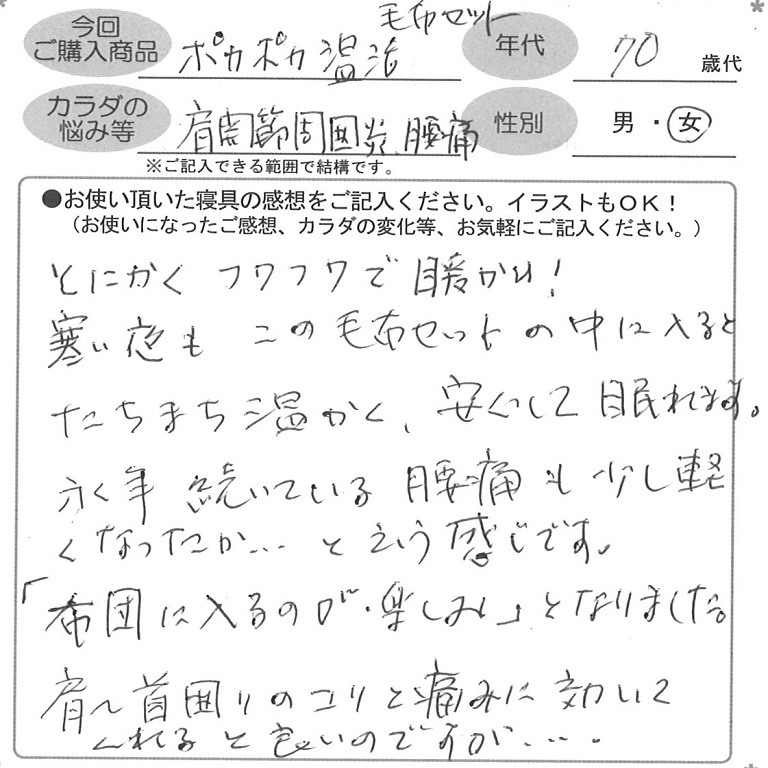 今回
ご購入商品
ポカポカ温活
毛布セット
年代
70
歳代
カラダの
悩み等
肩関節周囲炎、腰痛
性別
男・女
※ご記入できる範囲で結構です。
●お使い頂いた寝具の感想をご記入ください。イラストもOK！
（お使いになったご感想、カラダの変化等、お気軽にご記入ください。）
とにかくフワフワで暖かい！
寒い夜も この毛布セットの中に入ると
たちまち温かく、安心して眠れます。
永年続いている腰痛も少し軽
くなったか…という感じです。
「布団に入るのが楽しみ」となりました。
肩〜首囲りのコリと痛みに効いて
くれると良いのですが・・・・